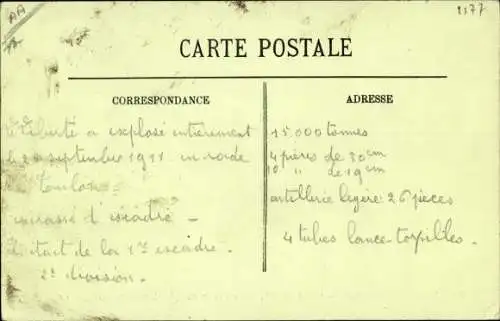 AA
2177
CARTE POSTALE
CORRESPONDANCE
Liberté a explosé entièrement
le 2 septembre 1911 en rade
Toulon
cuirassé d'escadre -
était de la 1re escadre.
2e division.
ADRESSE
15.000 tonnes
4 pièces de 30 cm
10 " de 19 cm
artillerie légère : 26 pièces
4 tubes lance-torpilles.